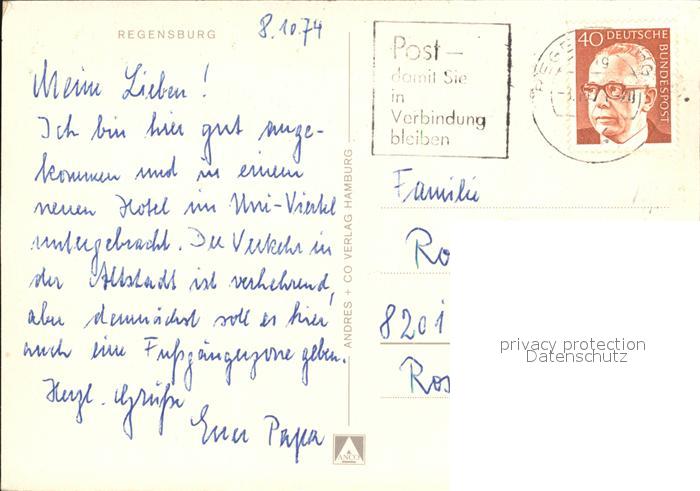 REGENSBURG
8.10.74
Meine Lieben!
Ich bin hier gut ange-
kommen und in einem
neuen Hotel im Uni-Viertel
untergebracht. Der Verkehr in
der Altstadt ist verheerend,
aber demnächst soll es hier
auch eine Fußgängerzone geben.
Herzl. Grüße
Euer Papa
ANDRES + CO VERLAG HAMBURG
ANCO
Post –
damit Sie
in
Verbindung
bleiben
40 DEUTSCHE
BUNDESPOST
Familie
Ro
8201
Ros
privacy protection
Datenschutz